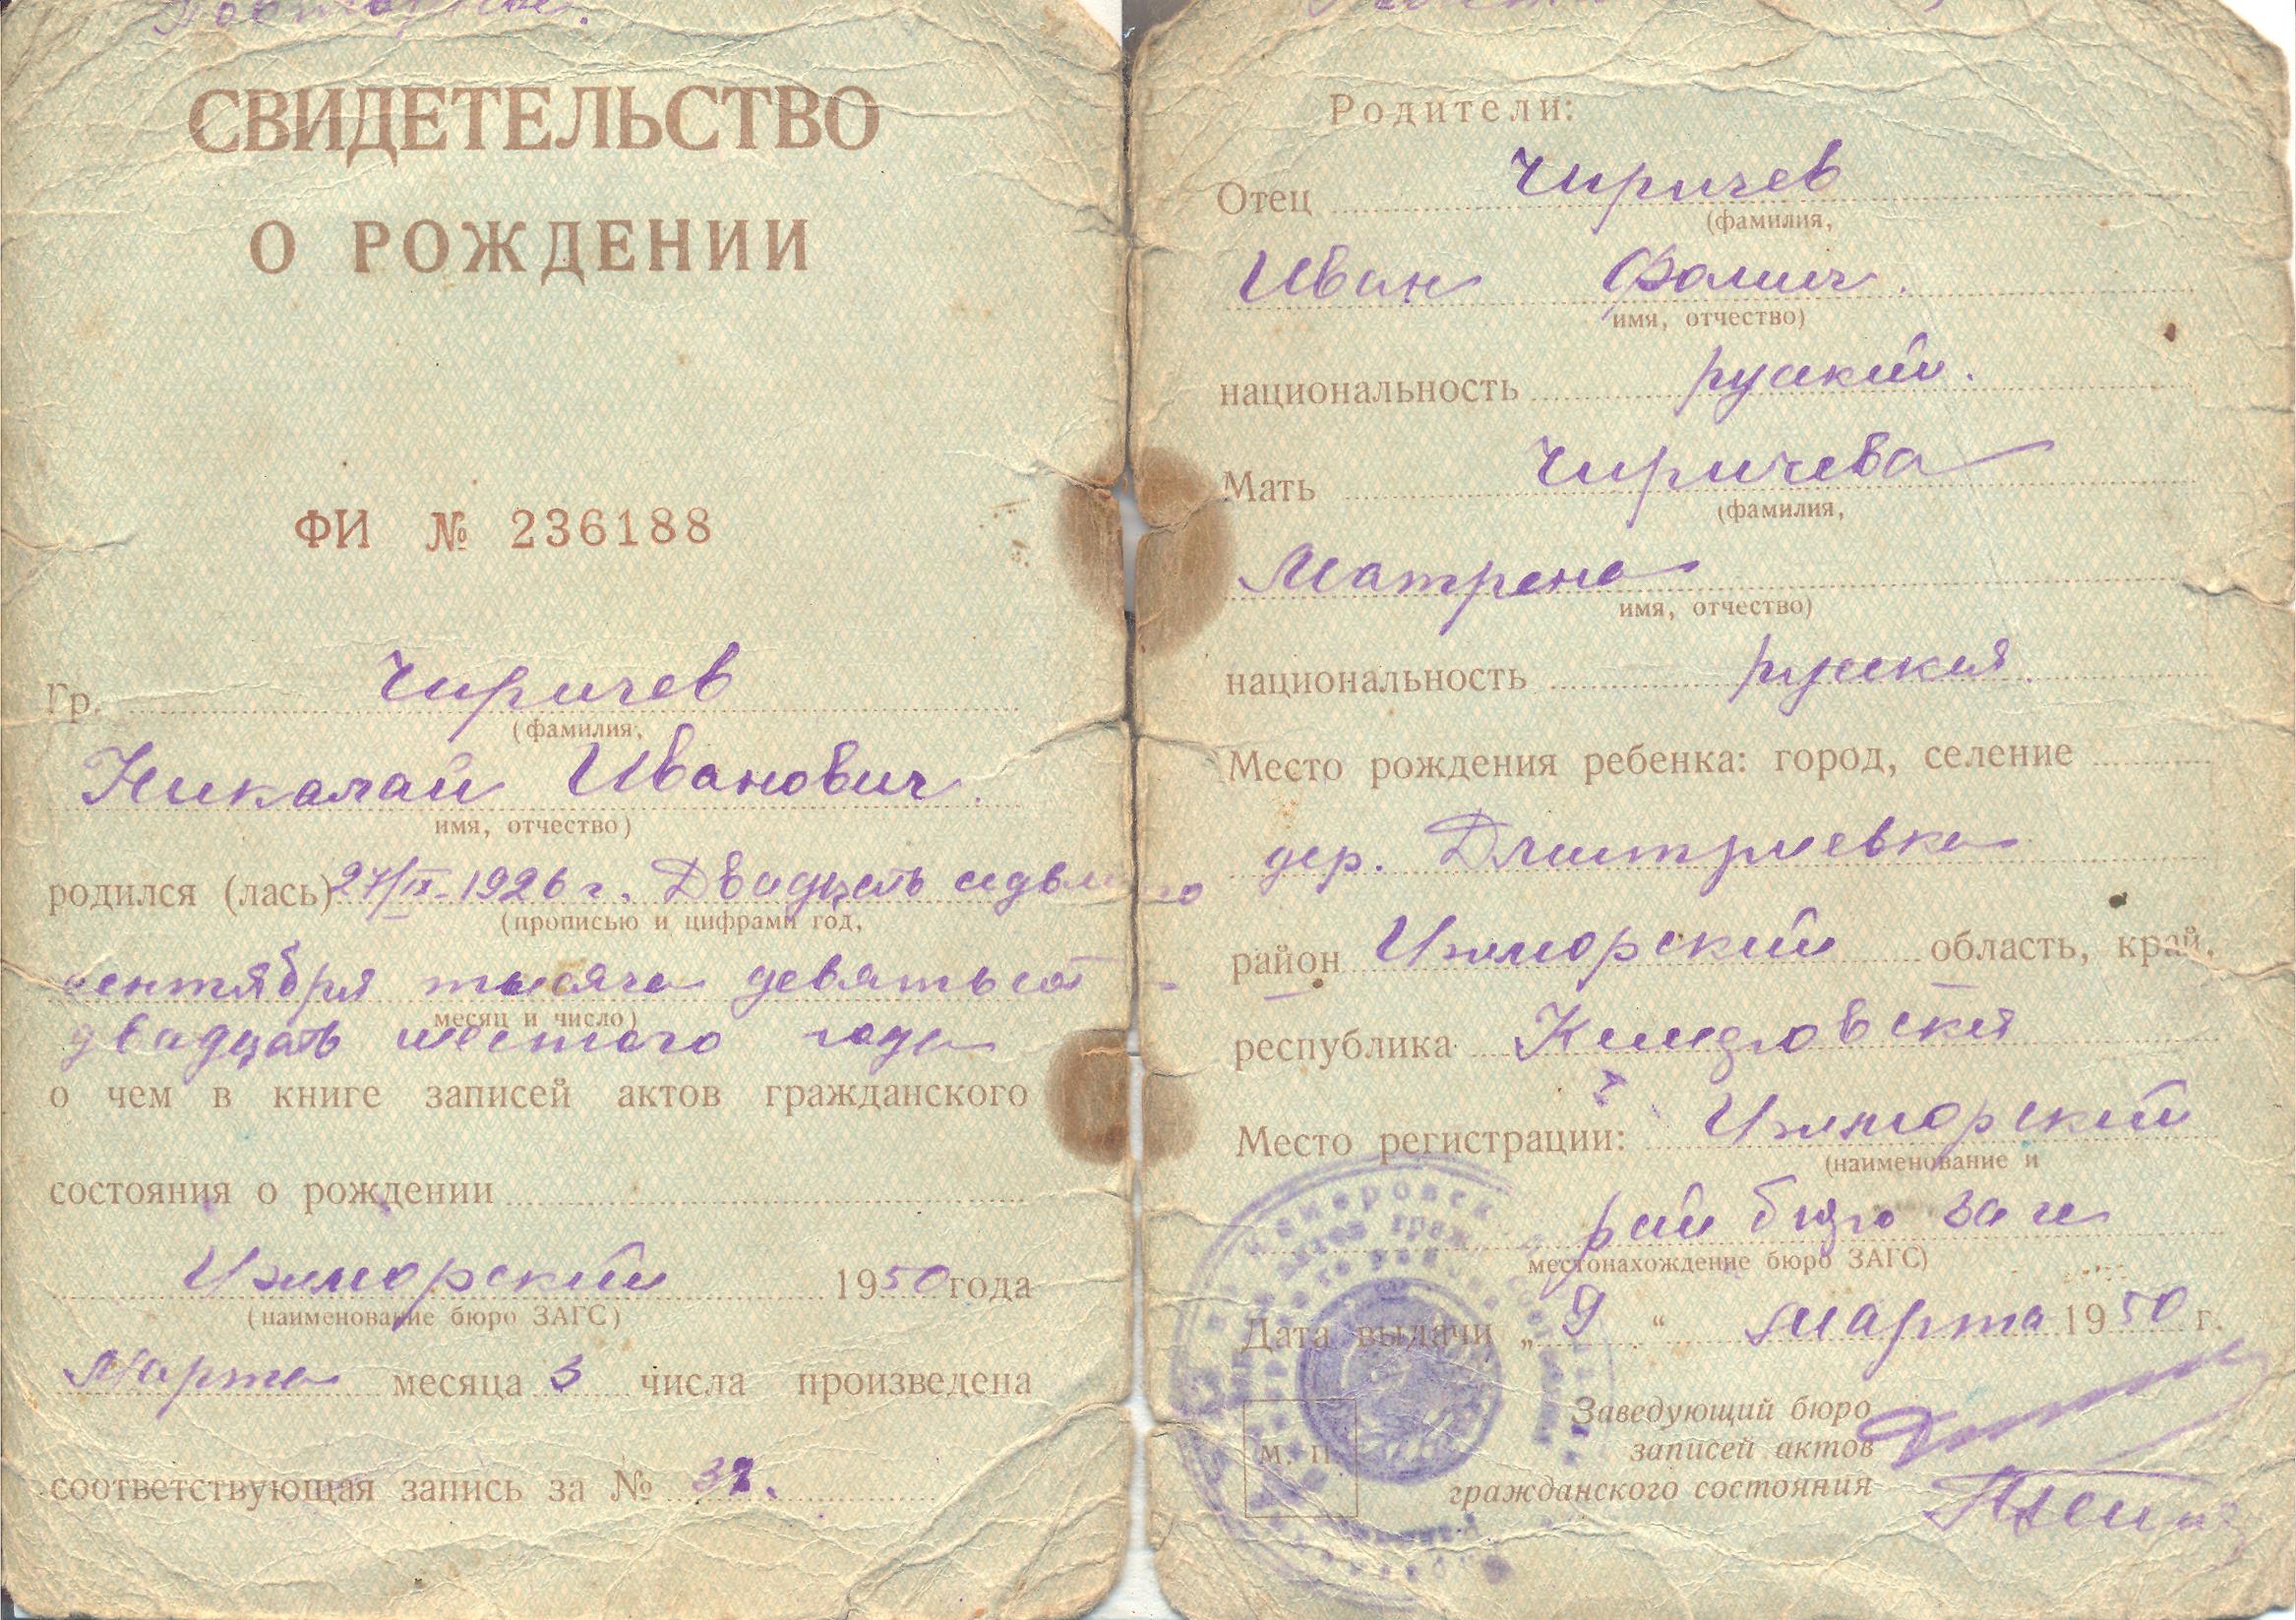 Повторное.
СВИДЕТЕЛЬСТВО
О РОЖДЕНИИ
ФИ № 236188
Гр. Чиричев
(фамилия,
Николай Иванович.
имя, отчество)
родился (лась) 27/IX-1926 г. Двадцать седьмого
(прописью и цифрами год,
сентября тысяча девятьсот
месяц и число)
двадцать шестого года
о чем в книге записей актов гражданского
состояния о рождении
Ижморский 1950 года
(наименование бюро ЗАГС)
Марта месяца 3 числа произведена
соответствующая запись за №
Родители:
Отец Чиричев
(фамилия,
Иван Фомич.
имя, отчество)
национальность руский.
Мать Чиричева
(фамилия,
Матрена
имя, отчество)
национальность руская
Место рождения ребенка: город, селение
дер. Дмитриевка
район Ижморский область, край,
республика Кемеровская
Место регистрации: Ижморский
(наименование и
рай бюро загс
местонахождение бюро ЗАГС)
Дата выдачи „ 9 “ Марта 1950 г.
М. П.
Заведующий бюро
записей актов
гражданского состояния